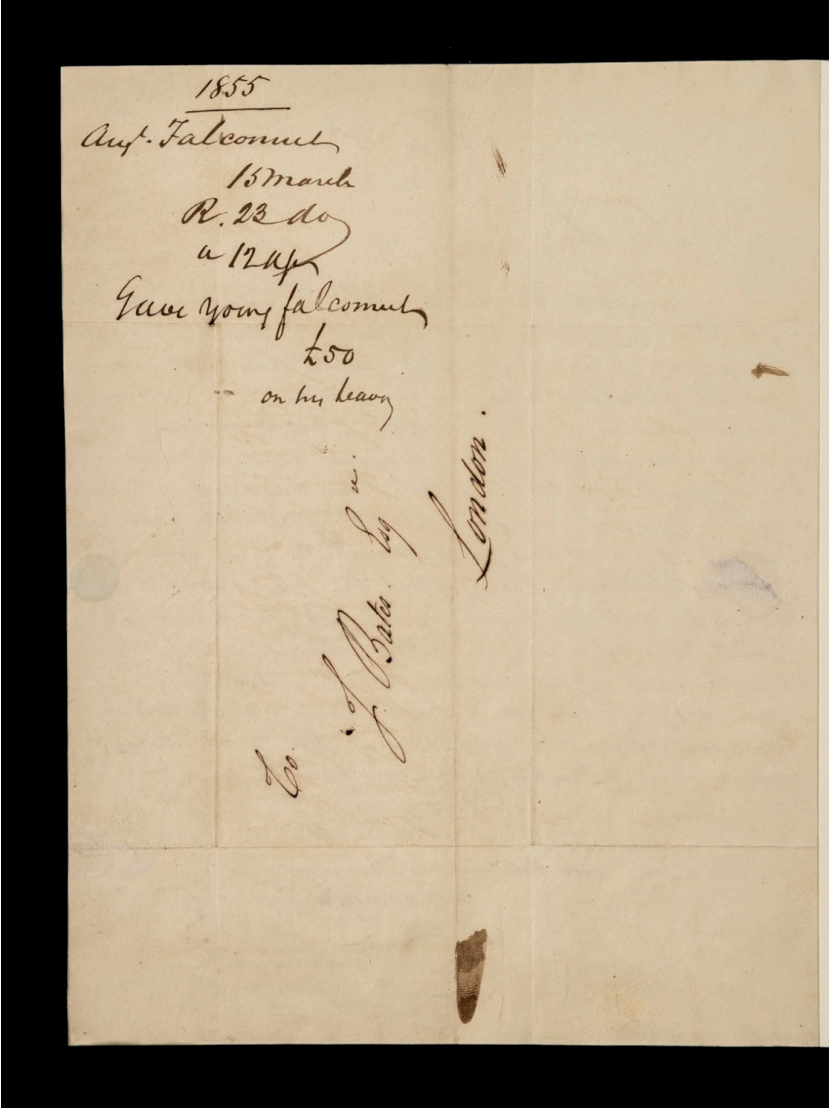 1855
Augt. Falconnet
15 March
R. 23 do
a 12 Apr
Gave young falconnet
£50
on his leaving
To
J. Bates Esqre.
London.